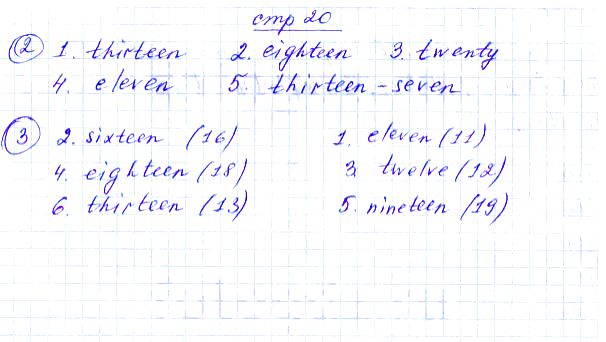 стр 20
② 1. thirteen 2. eighteen 3. twenty
4. eleven 5. thirteen - seven
③ 2. sixteen (16) 1. eleven (11)
4. eighteen (18) 3. twelve (12)
6. thirteen (13) 5. nineteen (19)